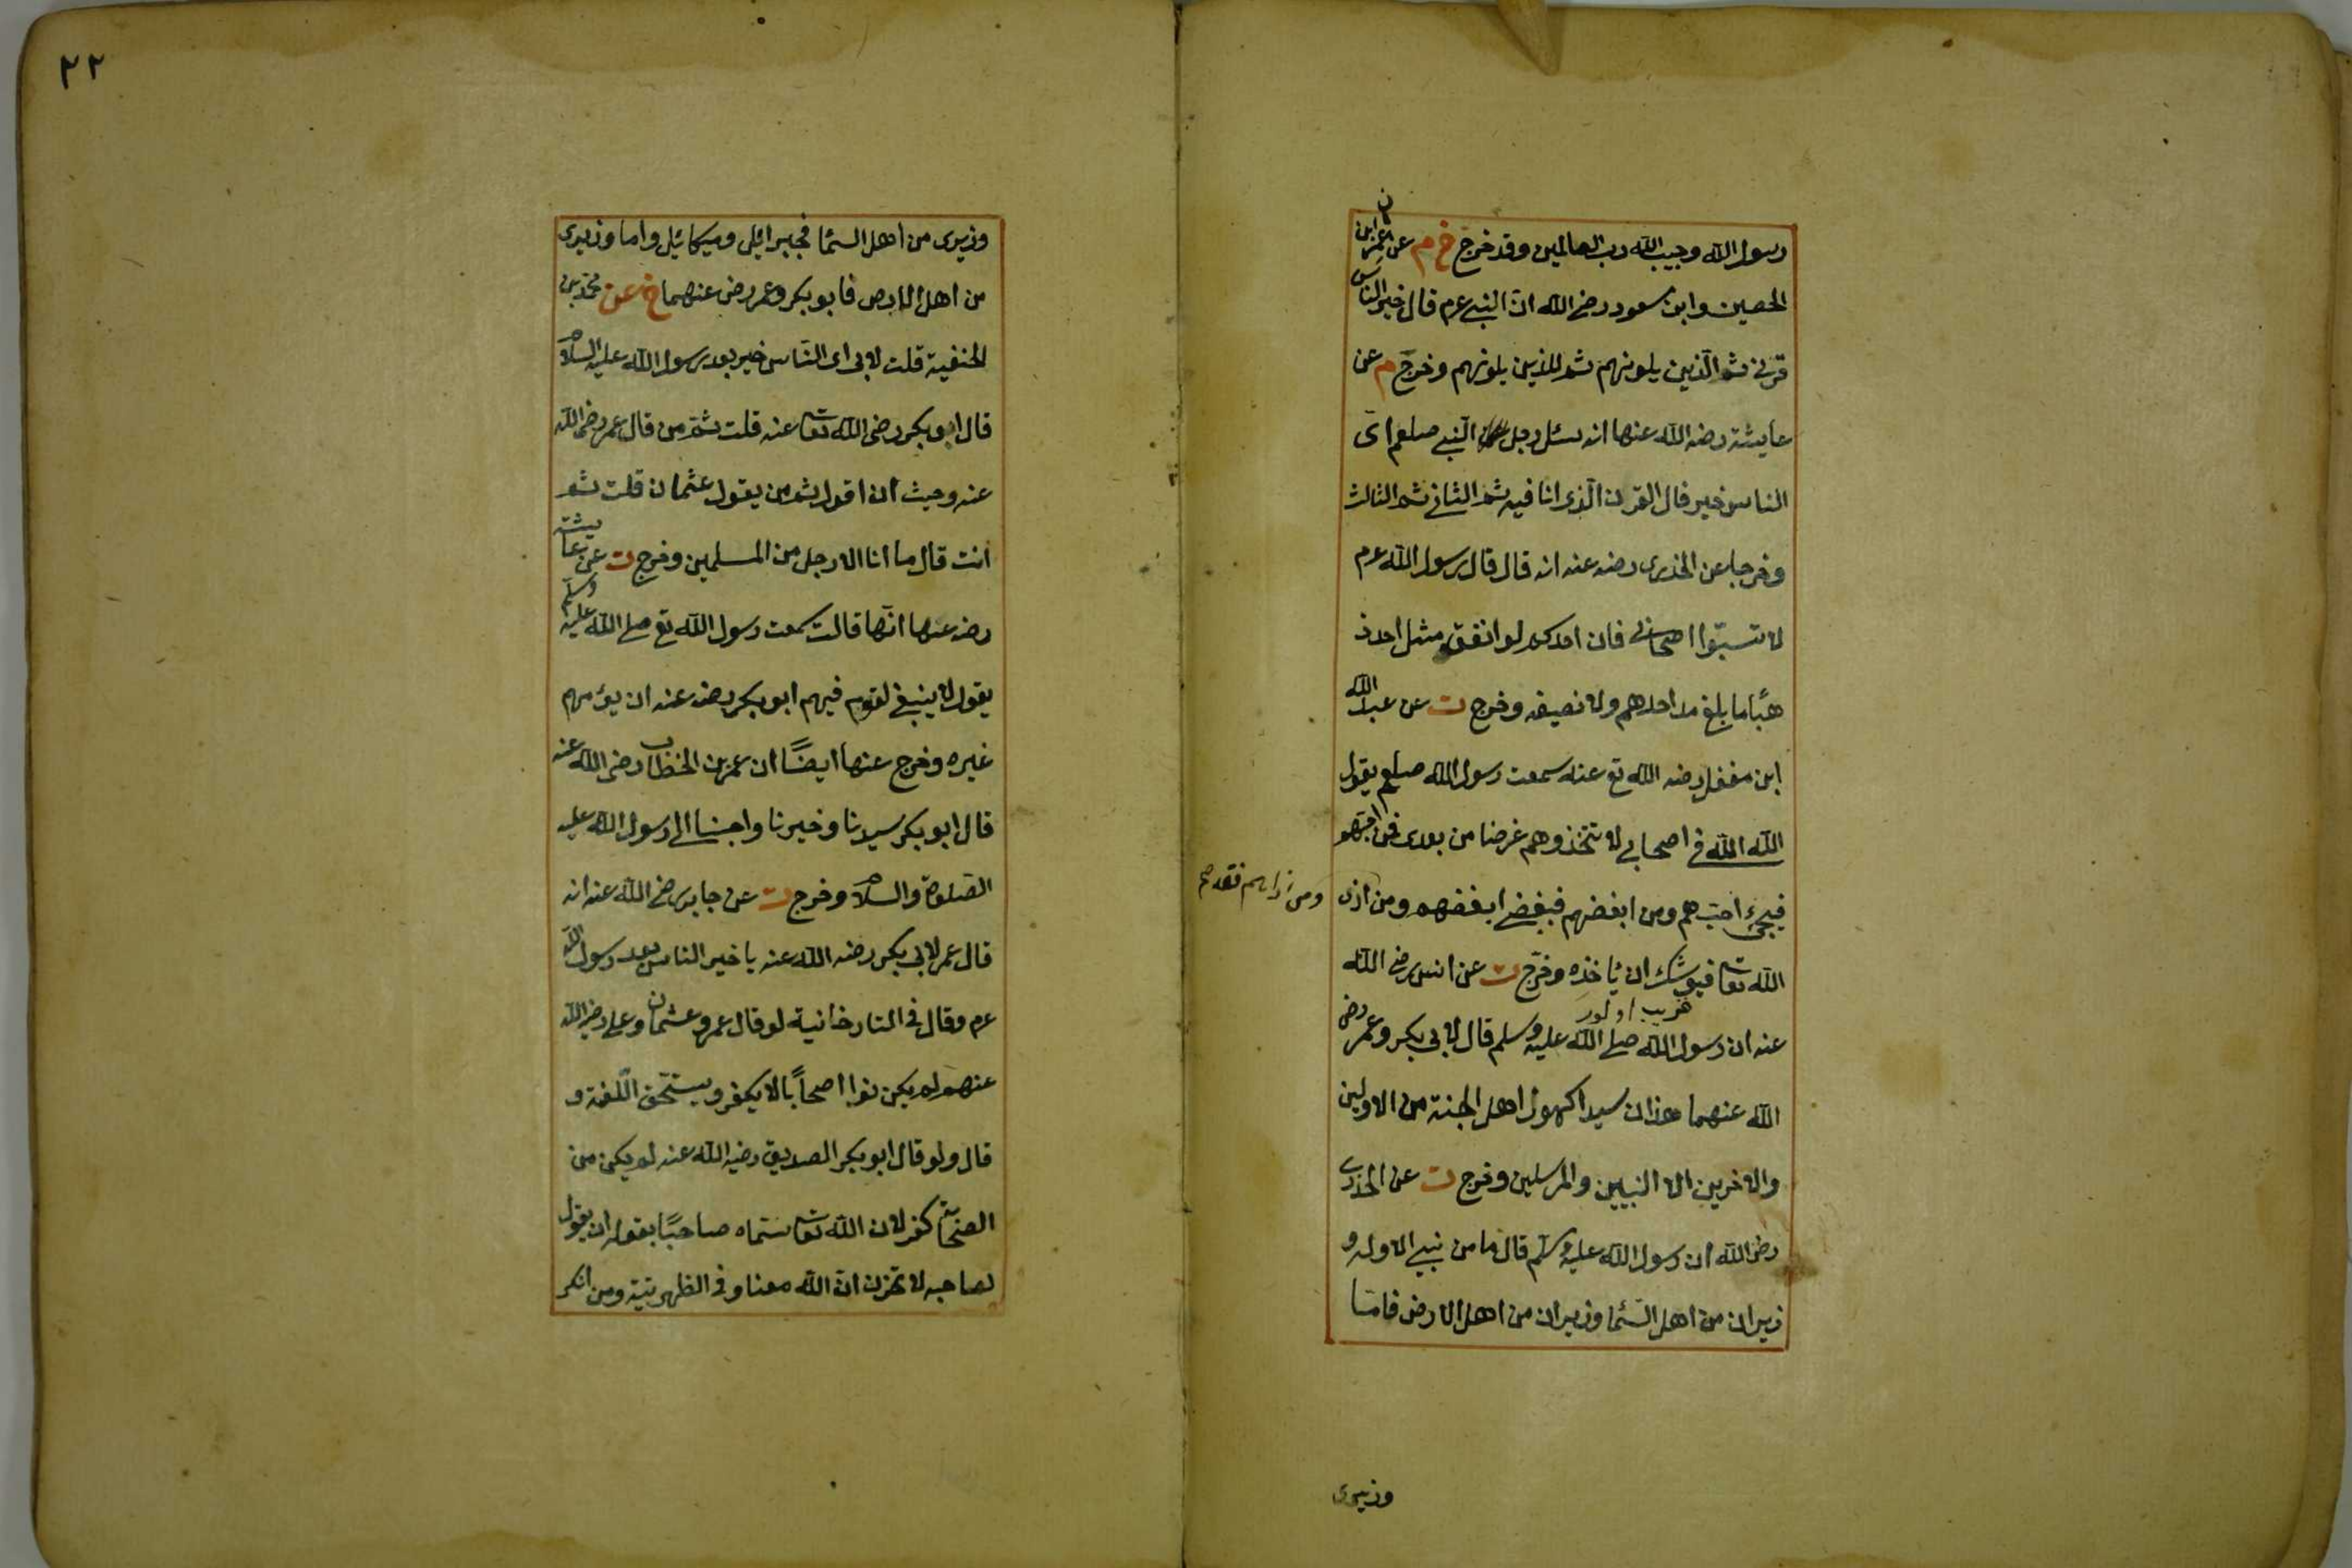 رسول الله وحبيب الله رب العالمين وقد خرج خ م عن عمران ابن
الحصين وابن مسعود رضى الله ان النبى عم قال خير الناس
قرنى ثم الذين يلونهم ثم للذين يلونهم وخرج م عن
عايشة رضه الله عنها انه سئل رجل النبى صلعم اى
الناس خير قال القرن الذى انا فيه ثم الثانى ثم الثالث
وخرجا عن الخدرى رضه عنه انه قال قال رسول الله عم
لا تسبوا اصحابى فان احدكم لو انفق مثل احد ذ
هبًا ما بلغ مد احدهم ولا نصيفه وخرج ت عن عبد الله
ابن مغفل رضه الله تع عنه سمعت رسول الله صلعم يقول
الله الله فى اصحابى لا تتخذوهم غرضا من بعدى فمن احبهم
فبحبى احبهم ومن ابغضهم فببغضى ابغضهم ومن اذى
ومن اذاهم فقد
الله تعا فيوشك ان ياخذه وخرج ت عن انس رضى الله
قريب اولور
عنه ان رسول الله صلى الله عليه وسلم قال لابى بكر وعمر رضى
الله عنهما هذان سيدا كهول اهل الجنة من الاولين
والاخرين الا النبيين والمرسلين وخرج ت عن الخدرى
رضى الله ان رسول الله عليه وسلم قال ما من نبى الا وله و
زيران من اهل السما وزيران من اهل الارض فاما
وزيرى
٢٢
وزيرى من اهل السما فجبرائيل وميكائيل واما وزيرى
من اهل الارض فابو بكر وعمر رضى عنهما خ عن محمد بن
الحنفية قلت لابى اى الناس خير بعد رسول الله عليه السلام
قال ابو بكر رضى الله تعا عنه قلت ثم من قال عمر رضى الله
عنه وحيث ان اقول ثم من يقول عثمان قلت ثم
انت قال ما انا الا رجل من المسلمين وخرج ت عن عايشة
رضه عنها انها قالت سمعت رسول الله تع صلى الله عليه وسلم
يقول لا ينبغى لقوم فيهم ابو بكر رضه عنه ان يؤمهم
غيره وخرج عنها ايضًا ان عمر بن الخطاب رضى الله عنه
قال ابو بكر سيدنا وخيرنا واحبنا الى رسول الله عليه
الصلوة والسلام وخرج ت عن جابر رضى الله عنه انه
قال عمر لابى بكر رضه الله عنه يا خير الناس بعد رسول الله
عم وقال فى التتارخانية لو قال عمر وعثمان وعلى رضى الله
عنهم لم يكن نوا اصحابًا لا يكفر ويستحق اللعنة و
قال ولو قال ابو بكر الصديق رضيه الله عنه لم يكن من
الصحابة كفر لان الله تعا سماه صاحبًا بقوله ان يقول
لصاحبه لا تحزن ان الله معنا وفى الظهيرية ومن انكر